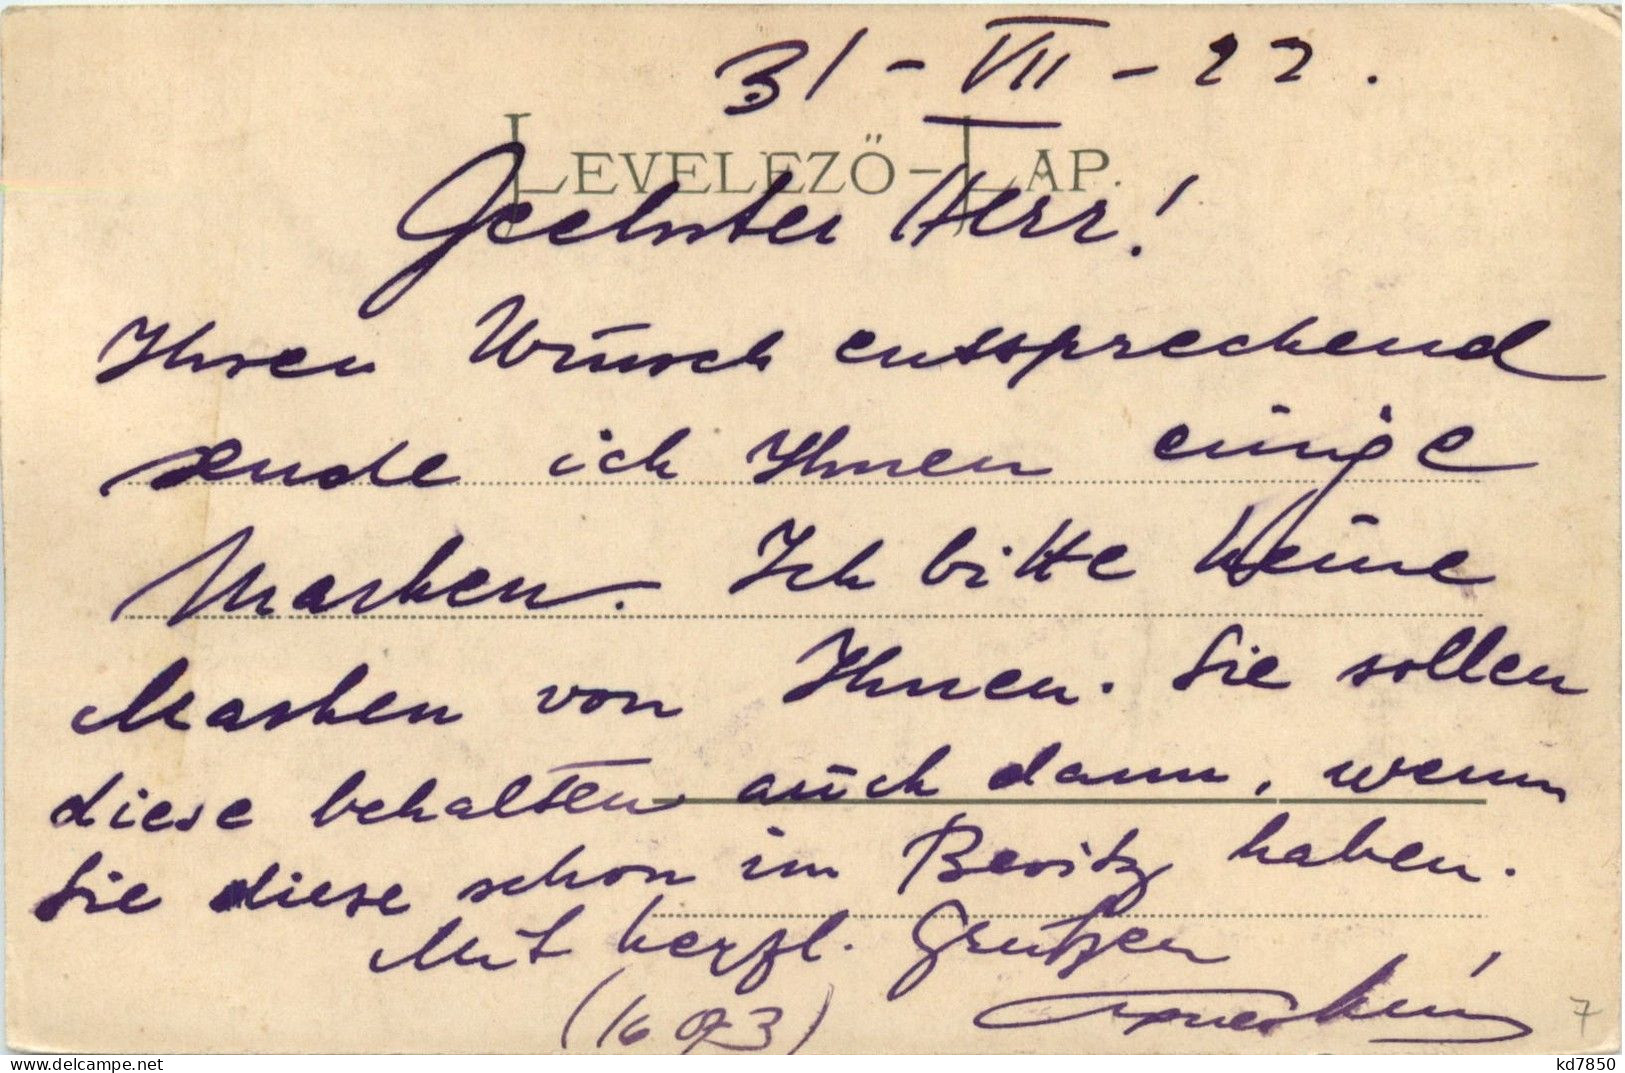 31 - VII - 22.
LEVELEZŐ-LAP.
Geehrter Herr!
Ihren Wunsch entsprechend
sende ich Ihnen einige
Marken. Ich bitte keine
Marken von Ihnen. Sie sollen
diese behalten auch dann, wenn
Sie diese schon im Besitz haben.
Mit herzl. Grüßen
(1693)
7
kd7850